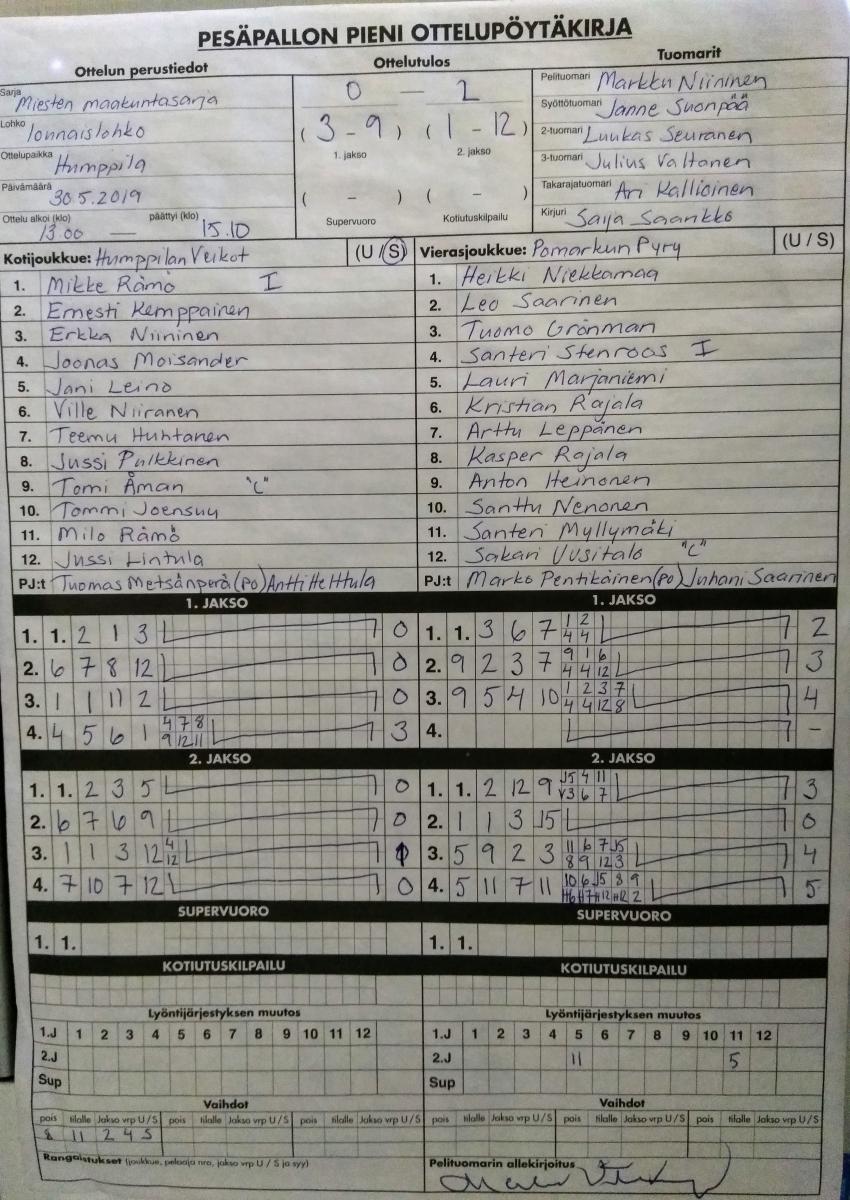 PESÄPALLON PIENI OTTELUPÖYTÄKIRJA
Ottelun perustiedot
Sarja Miesten maakuntasarja
Lohko lounnaislohko
Ottelupaikka Humppila
Päivämäärä 30.5.2019
Ottelu alkoi (klo) päättyi (klo)
13.00 — 15.10
Ottelutulos
0 — 2
( 3 - 9 ) ( 1 - 12 )
1. jakso 2. jakso
( - ) ( - )
Supervuoro Kotiutuskilpailu
Tuomarit
Pelituomari Markku Niininen
Syöttötuomari Janne Suonpää
2-tuomari Luukas Seuranen
3-tuomari Julius Valtonen
Takarajatuomari Ari Kallioinen
Kirjuri Saija Saarikko
Kotijoukkue: Humppilan Veikot (U / S)
1. Mikke Rämö I
2. Ernesti Kemppainen
3. Erkka Niininen
4. Joonas Moisander
5. Jani Leino
6. Ville Niiranen
7. Teemu Huhtanen
8. Jussi Pulkkinen
9. Tomi Åman "C"
10. Tommi Joensuu
11. Milo Rämö
12. Jussi Lintula
PJ:t Tuomas Metsänperä (po) Antti Hettula
Vierasjoukkue: Pomarkun Pyry (U / S)
1. Heikki Niekkamaa
2. Leo Saarinen
3. Tuomo Grönman
4. Santeri Stenroos I
5. Lauri Marjaniemi
6. Kristian Rajala
7. Arttu Leppänen
8. Kasper Rajala
9. Anton Heinonen
10. Santtu Nenonen
11. Santeri Myllymäki
12. Sakari Uusitalo "C"
PJ:t Marko Pentikäinen (po) Juhani Saarinen
1. JAKSO
1. 1. 2 1 3 0
2. 6 7 8 12 0
3. 1 1 11 2 0
4. 4 5 6 1 4 7 8 3
9 12 11
2. JAKSO
1. 1. 2 3 5 0
2. 6 7 6 9 0
3. 1 1 3 12 4 1
12
4. 7 10 7 12 0
SUPERVUORO
1. 1.
KOTIUTUSKILPAILU
1. JAKSO
1. 1. 3 6 7 1 2 2
4 4
2. 9 2 3 7 9 1 6 3
4 4 12
3. 9 5 4 10 1 2 3 7 4
4 4 12 8
4. -
2. JAKSO
1. 1. 2 12 9 J5 4 11 3
V3 6 7
2. 1 1 3 J5 0
3. 5 9 2 3 11 6 7 J5 4
8 9 12 3
4. 5 11 7 11 10 6 J5 8 9 5
H6 H7 H12 H12 2
SUPERVUORO
1. 1.
KOTIUTUSKILPAILU
Lyöntijärjestyksen muutos
1.J 1 2 3 4 5 6 7 8 9 10 11 12
2.J
Sup
Lyöntijärjestyksen muutos
1.J 1 2 3 4 5 6 7 8 9 10 11 12
2.J 11 5
Sup
Vaihdot
pois tilalle Jakso vrp U / S pois tilalle Jakso vrp U / S pois tilalle Jakso vrp U / S
8 11 2 4 S
Vaihdot
pois tilalle Jakso vrp U / S pois tilalle Jakso vrp U / S pois tilalle Jakso vrp U / S
Rangaistukset (joukkue, pelaaja nro, jakso vrp U / S ja syy)
Pelituomarin allekirjoitus